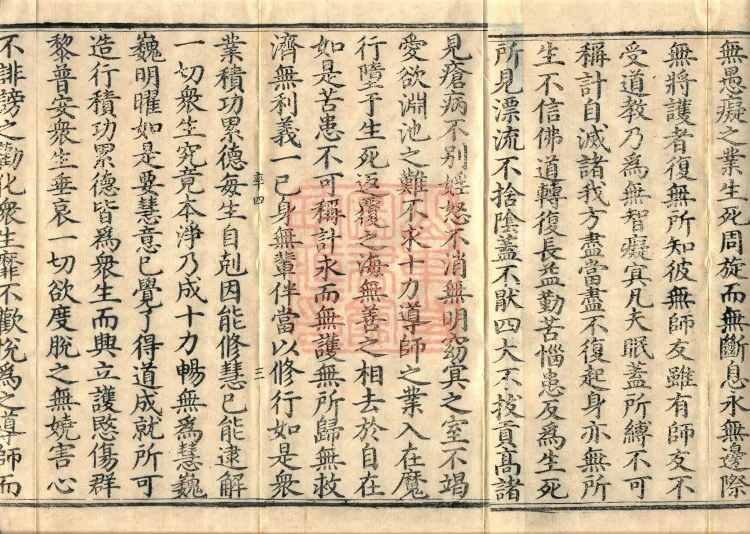 無愚癡之業生死周旋而無斷息永無邊際
無將護者復無所知彼無師友雖有師友不
受道教乃為無智癡㝠凡夫眠蓋所縛不可
稱計自滅諸我方盡當盡不復起身亦無所
生不信佛道轉復長益勤苦惱患反為生死
所見漂流不捨陰蓋不猒四大不拔貢高諸
見瘡病不別婬怒不消無明窈㝠之室不竭
愛欲淵池之難不求十力導師之業入在魔
行墮于生死返覆之海無善之相去於自在
如是苦患不可稱計永而無護無所歸無救
濟無利義一己身無輩伴當以修行如是衆
率四
三
業積功累德每生自剋因能修慧已能逮解
一切衆生究竟本淨乃成十力暢無為慧巍
巍明曜如是要慧意已覺了得道成就所可
造行積功累德皆為衆生而興立護愍傷群
黎普安衆生垂哀一切欲度脫之無嬈害心
不誹謗之勸化衆生靡不歡悅為之導師而